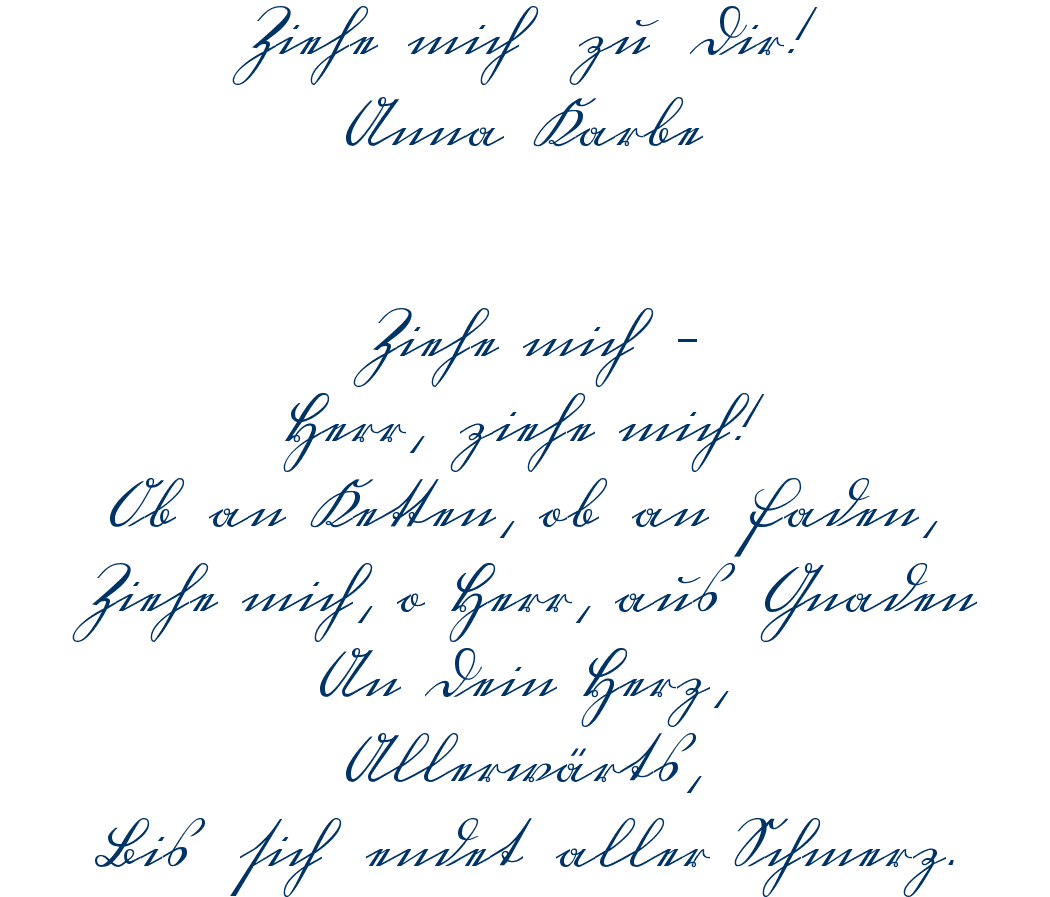 Ziehe mich zu dir!
Anna Karbe
Ziehe mich -
Herr, ziehe mich!
Ob an Ketten, ob an Faden,
Ziehe mich, o Herr, aus Gnaden
An dein Herz,
Allerwärts,
Bis sich endet aller Schmerz.